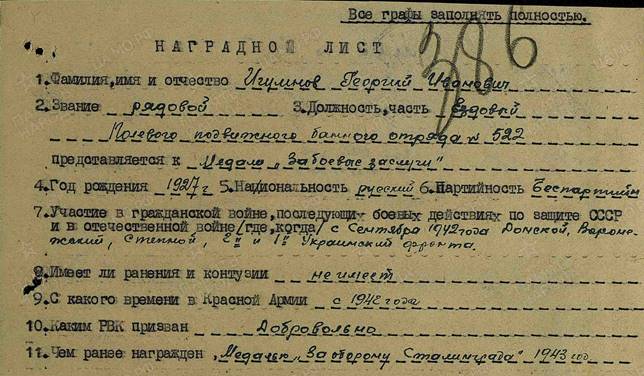 Все графы заполнять полностью.
386
НАГРАДНОЙ ЛИСТ
1. Фамилия, имя и отчество Игумнов Георгий Иванович
2. Звание рядовой 3. Должность, часть Ездовой
Полевого подвижного банного отряда № 522
представляется к Медалью „За боевые заслуги"
4. Год рождения 1927 г 5. Национальность русский 6. Партийность Беспартийн
7. Участие в гражданской войне, последующих боевых действиях по защите СССР
и в отечественной войне /где, когда/ с Сентября 1942 года Донской, Вороне-
жский, Степной, 2й и 1й Украинский фронта.
8. Имеет ли ранения и контузии не имеет
9. С какого времени в Красной Армии с 1942 года
10. Каким РВК призван Добровольно
11. Чем ранее награжден „Медалью „За оборону Сталинграда" 1943 год